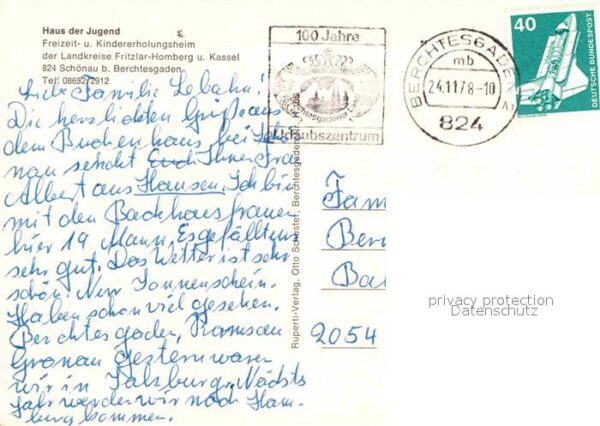 Haus der Jugend
Freizeit- u. Kindererholungsheim
der Landkreise Fritzlar-Homberg u. Kassel
824 Schönau b. Berchtesgaden
Tel. 08652/2912
Liebe Familie Lebahn!
Die herzlichsten Grüße aus
dem Buchenhaus bei Schö
nau sendet Euch Ihnen Frau
Albert aus Hausen. Ich bin
mit den Backhausfrauen
hier 19 Mann. Es gefällt uns
sehr gut. Das Wetter ist sehr
schön. Nur Sonnenschein.
Haben schon viel gesehen.
Berchtesgaden, Ramsau
gestern waren
wir in Salzburg. Nächstes
Jahr werden wir nach Ham-
burg kommen.
Ruperti-Verlag, Otto Berchtesgaden
100 Jahre
Berchtesgadener Land
Urlaubszentrum
BERCHTESGADEN
mb
24.11.78-10
824
40
DEUTSCHE BUNDESPOST
Fam
Ber
Ba
2054
privacy protection
Datenschutz